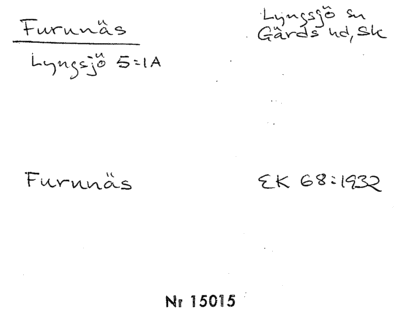 Furunäs
Lyngsjö sn
Gärds hd, Sk
Lyngsjö 5:1A
Furunäs
EK 68:1932
Nr 15015